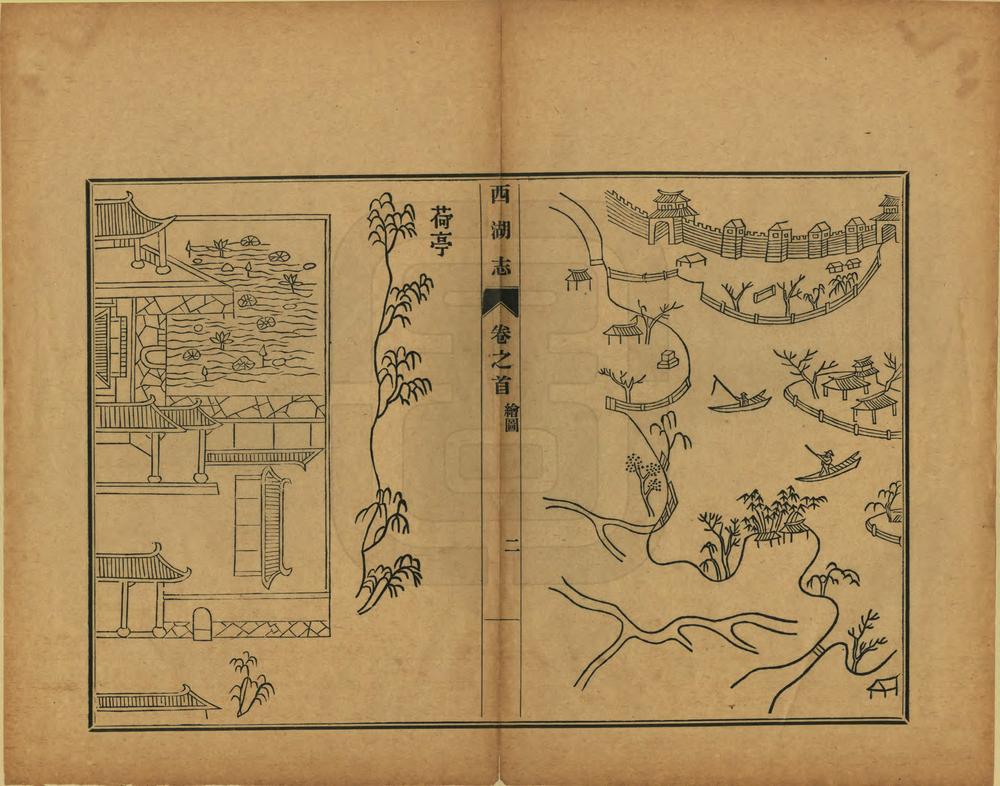 西湖志
卷之首
繪圖
二
荷亭